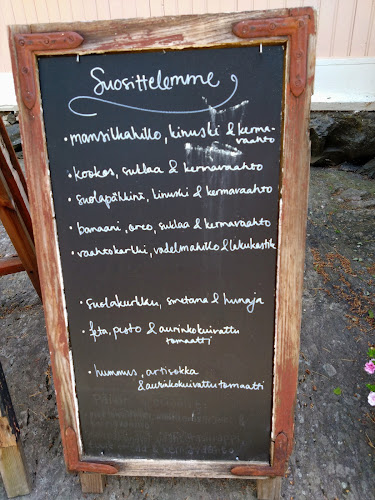 Suosittelemme
• mansikkahillo, kinuski & kerma-
vaahto
• kookos, suklaa & kermavaahto
• suolapähkinä, kinuski & kermavaahto
• banaani, oreo, suklaa & kermavaahto
• vaahtokarkki, vadelmahillo & lakukastike
• suolakurkku, smetana & hunaja
• feta, pesto & aurinkokuivattu
tomaatti
• hummus, artisokka
& aurinkokuivattu tomaatti